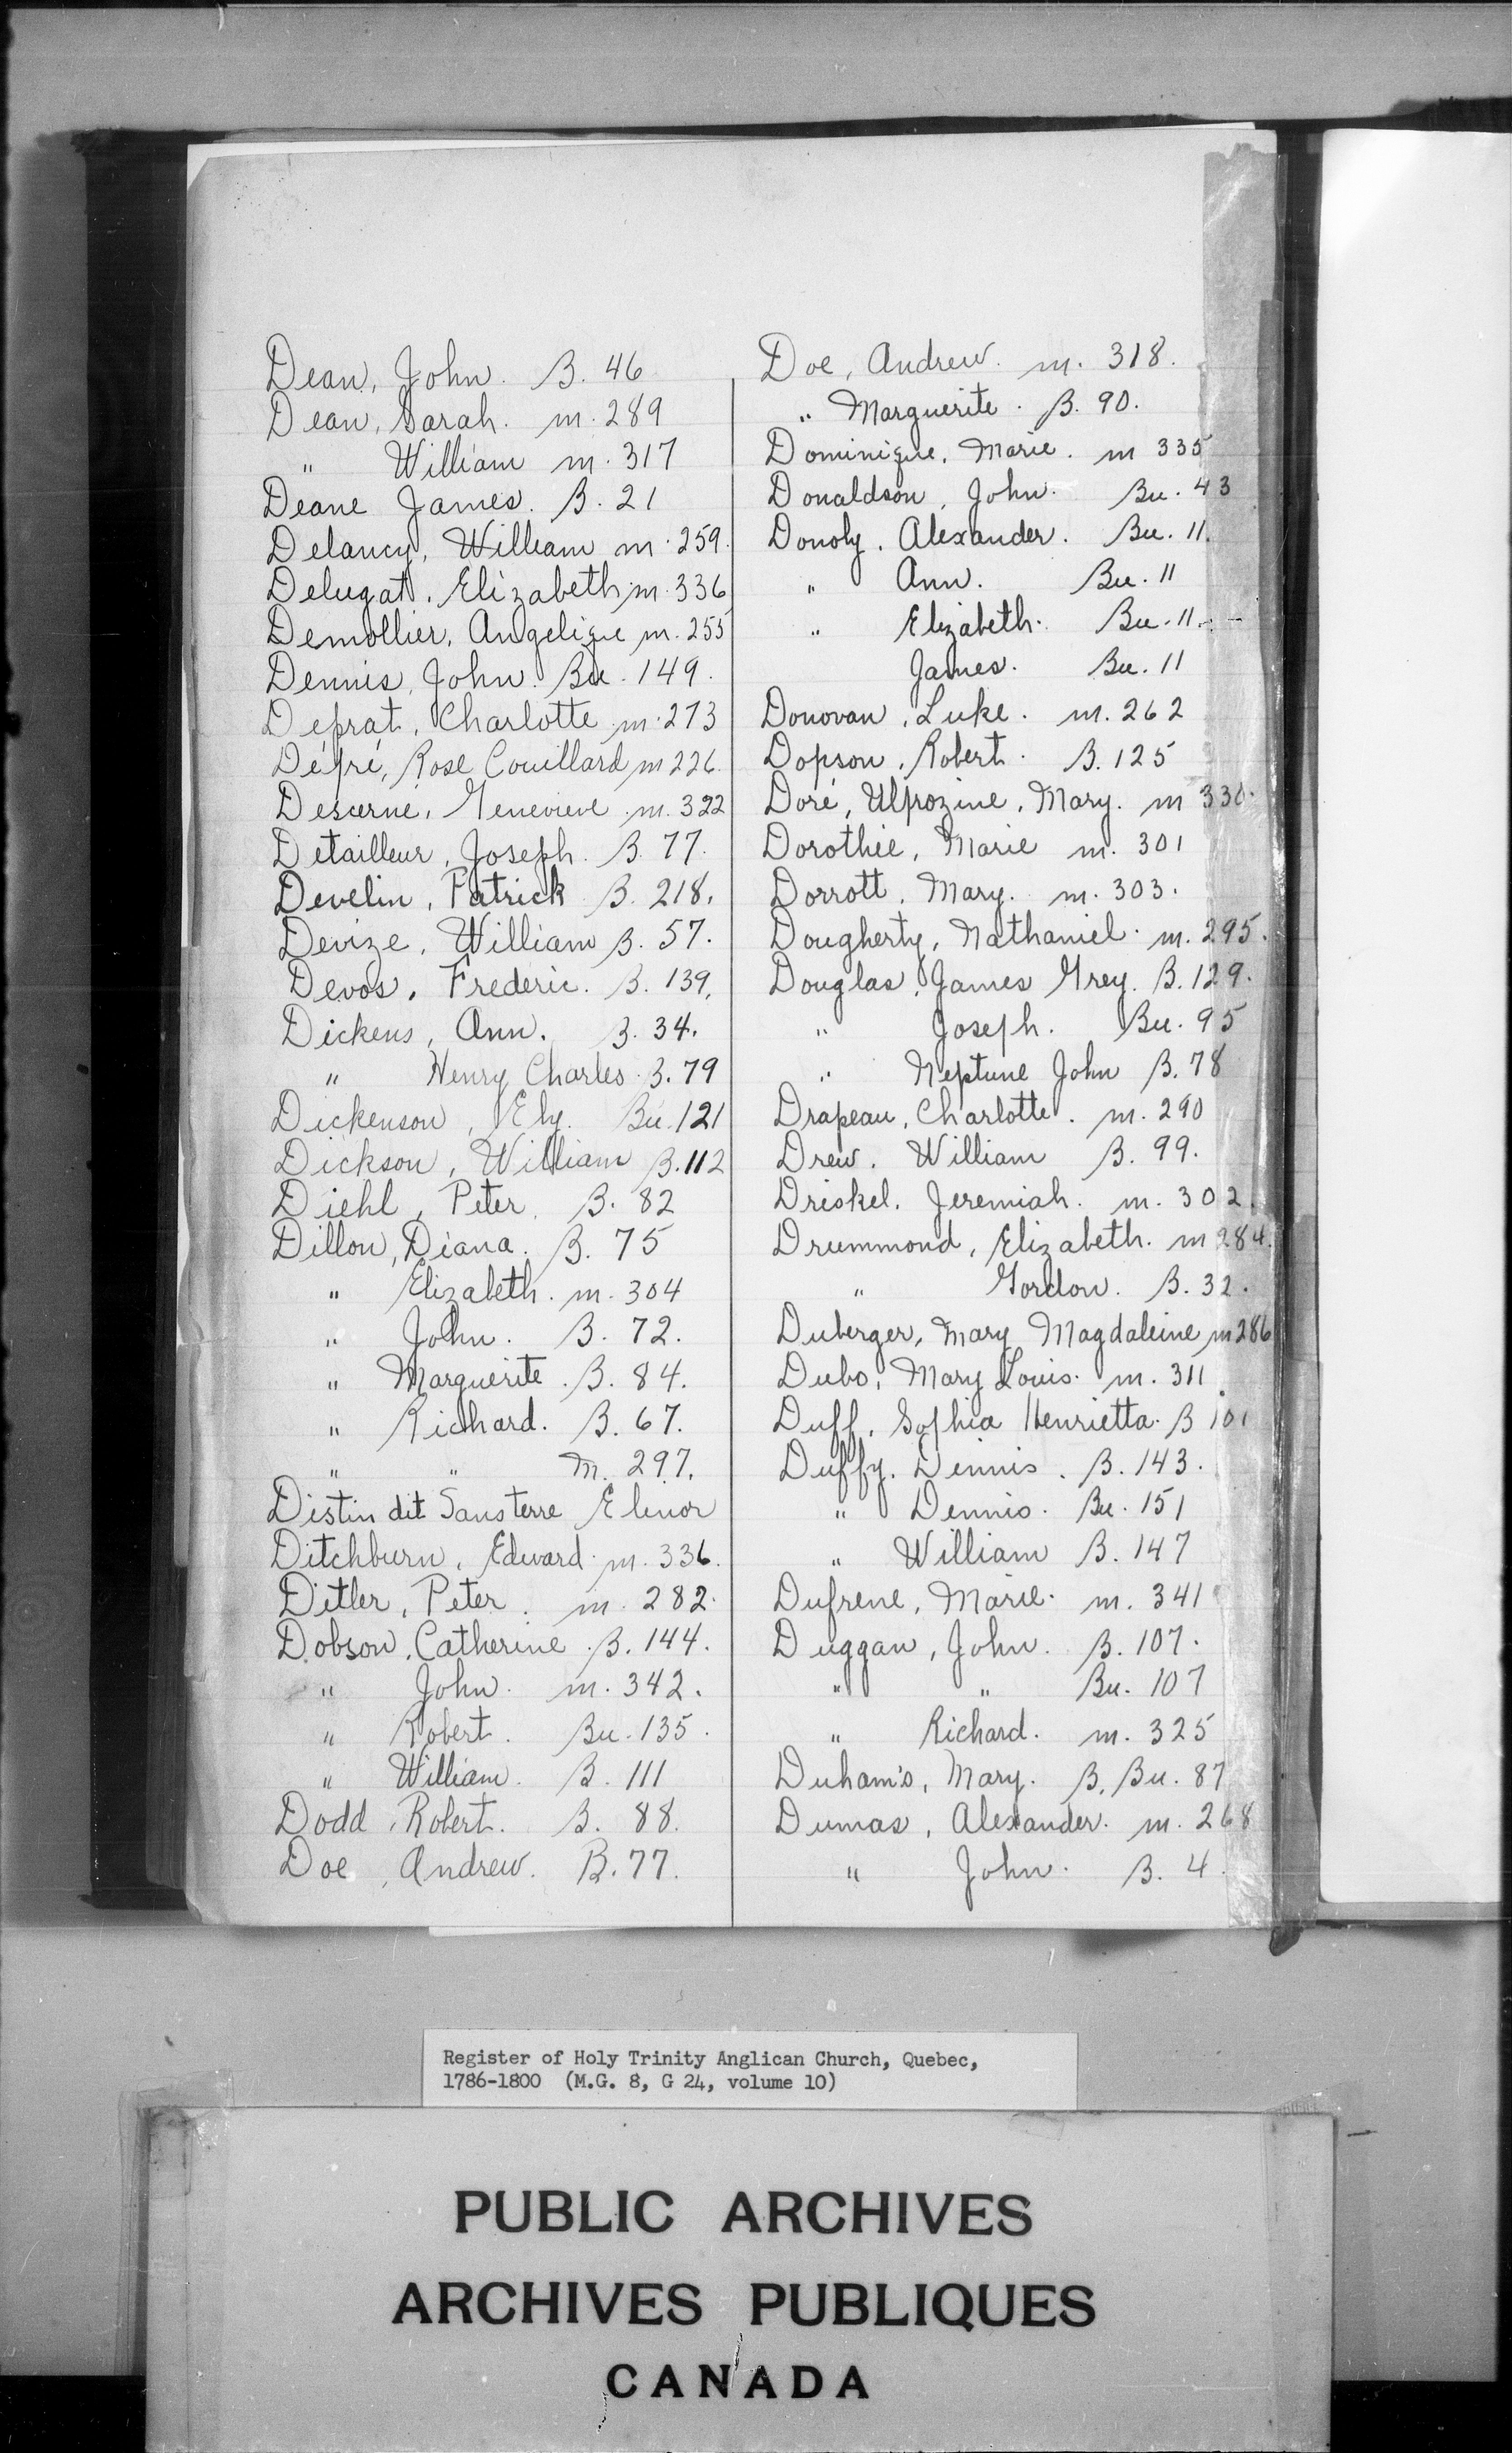 Dean, John. B. 46
Dean, Sarah. m. 289
" William m. 317
Deane James. B. 21
Delancy, William m. 259.
Delugat, Elizabeth m. 336
Demollier, Angelique m. 255
Dennis, John. Bu. 149.
Deprat, Charlotte m. 273
Dépré, Rose Couillard m 226.
Descerné, Genevieve m. 322
Detailleur, Joseph. B. 77.
Develin, Patrick B. 218.
Devize, William B. 57.
Devos, Frederic. B. 139.
Dickens, Ann. B. 34.
" Henry Charles. B. 79
Dickenson, Ely. Bu. 121
Dickson, William B. 112
Diehl, Peter. B. 82
Dillon, Diana. B. 75
" Elizabeth. m. 304
" John. B. 72.
" Marguerite. B. 84.
" Richard. B. 67.
" " m. 297.
Distin dit Sansterre Elenor
Ditchburn, Edward. m. 336.
Ditler, Peter. m. 282.
Dobson, Catherine. B. 144.
" John. m. 342.
" Robert. Bu. 135.
" William. B. 111
Dodd, Robert. B. 88.
Doe, Andrew. B. 77.
Doe, Andrew. m. 318.
" Marguerite. B. 90.
Dominique, Marie. m 335
Donaldson, John. Bu. 43
Donoly, Alexander. Bu. 11.
" Ann. Bu. 11
" Elizabeth. Bu. 11.
James. Bu. 11
Donovan, Luke. m. 262
Dopson, Robert. B. 125
Doré, Ulprozine, Mary. m 330.
Dorothée, Marie m. 301
Dorrott, Mary. m. 303.
Dougherty, Nathaniel. m. 295.
Douglas, James Grey. B. 129.
" Joseph. Bu. 95
" Neptune John B. 78
Drapeau, Charlotte. m. 290
Drew, William B. 99.
Driskel, Jeremiah. m. 302.
Drummond, Elizabeth. m 284.
" Gordon. B. 32.
Duberger, Mary Magdaleine m 286
Dubo, Mary Louis. m. 311
Duff, Sophia Henrietta. B 101
Duffy, Dennis. B. 143.
" Dennis. Bu. 151
" William B. 147
Dufrene, Marie. m. 341
Duggan, John. B. 107.
" " Bu. 107
" Richard. m. 325
Duham's, Mary. B, Bu. 87
Dumas, Alexander. m. 268
" John. B. 4.
Register of Holy Trinity Anglican Church, Quebec,
1786-1800 (M.G. 8, G 24, volume 10)
PUBLIC ARCHIVES
ARCHIVES PUBLIQUES
CANADA